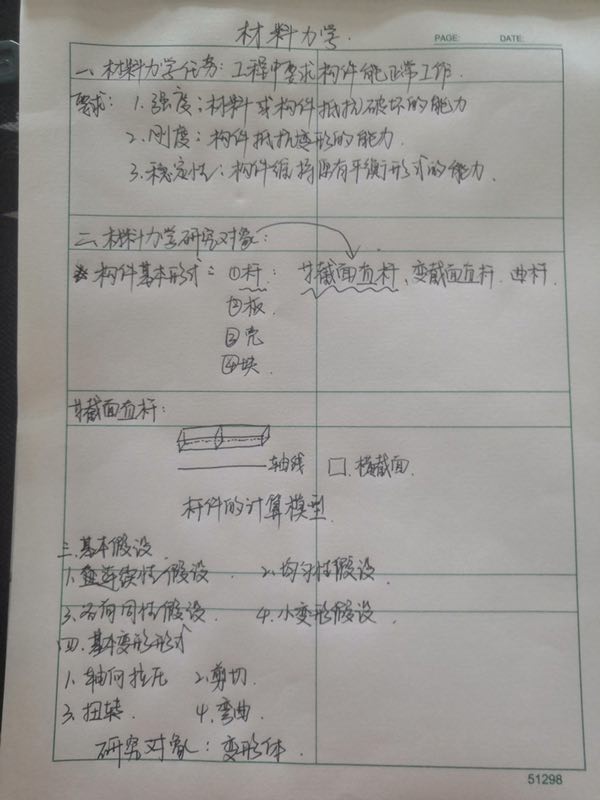 材料力学.
PAGE: DATE:
一、材料力学任务: 工程中要求构件能正常工作
要求: 1.强度: 材料或构件抵抗破坏的能力
2.刚度: 构件抵抗变形的能力.
3.稳定性: 构件维持原有平衡形式的能力.
二、材料力学研究对象:
构件基本形式: ①杆: 等截面直杆、变截面直杆. 曲杆.
②板.
③壳
④块.
等截面直杆:
轴线 横截面.
杆件的计算模型.
三.基本假设
1.连续性假设 2.均匀性假设
3.各向同性假设 4.小变形假设.
四.基本变形形式
1.轴向拉压 2.剪切.
3.扭转 4.弯曲.
研究对象: 变形体.
51298